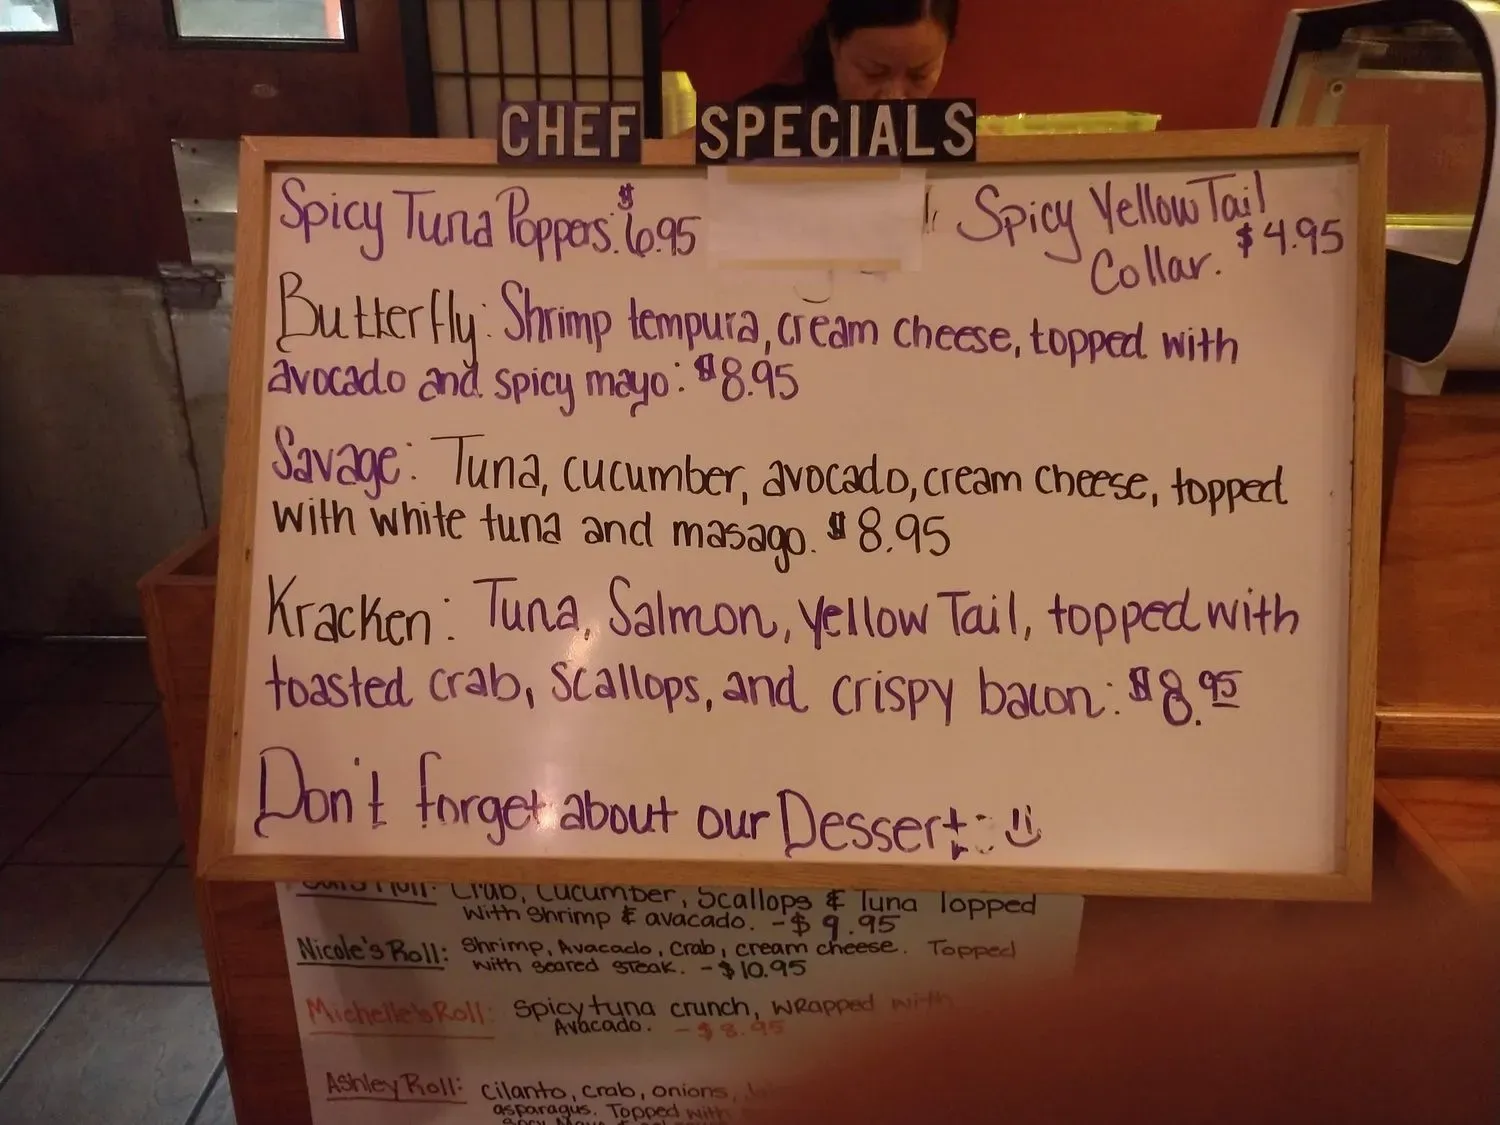 CHEF SPECIALS
Spicy Tuna Poppers: $6.95
Spicy Yellow Tail
Collar. $4.95
Butterfly: Shrimp tempura, cream cheese, topped with
avocado and spicy mayo: $8.95
Savage: Tuna, cucumber, avocado, cream cheese, topped
with white tuna and masago. $8.95
Kracken: Tuna, Salmon, Yellow Tail, topped with
toasted crab, scallops, and crispy bacon: $8.95
Don't forget about our Dessert
Roll: Crab, Cucumber, Scallops & Tuna Topped
with Shrimp & avacado. - $9.95
Nicole's Roll: Shrimp, Avacado, Crab, cream cheese. Topped
with seared steak. - $10.95
Michelle's Roll: Spicy tuna crunch, wrapped with
Avacado. - $8.95
Ashley Roll: cilanto, crab, onions,
asparagus. Topped with